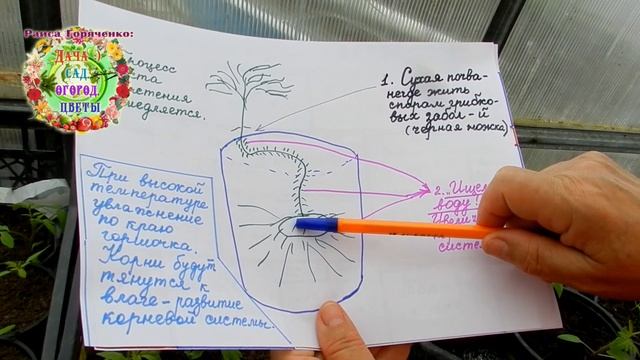 Раиса Горяченко:
ДАЧА
САД
ОГОРОД
ЦВЕТЫ
1. Сухая почва-
негде жить
спорам грибко-
вых забол-й
(черная ножка)
2. „Ищем
воду!
систем
При высокой
температуре
увлажнение
по краю
горшочка.
Корни будут
тянутся к
влаге-развитие
корневой системы.